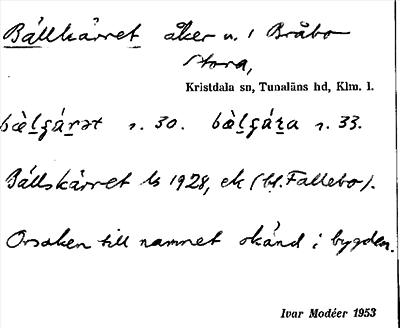 Bällkärret åker n. i Bråbo
Stora,
Kristdala sn, Tunaläns hd, Klm. l.
r. 30. r. 33.
Bällskärret ls 1928, ek (bl. Fallebo).
Orsaken till namnet okänd i bygden.
Ivar Modéer 1953